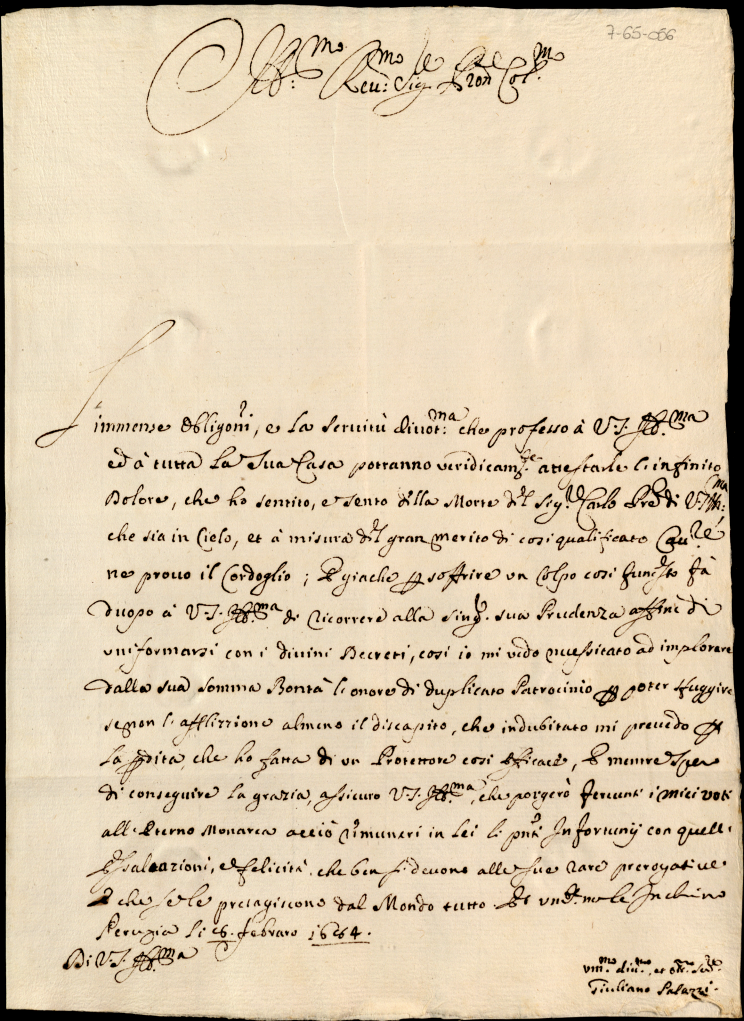 7-65-056
Ill:mo Reu:mo Sig.re Pron Col:mo
L'immense Obligoni, e la seruitù diuot:ma che professo à V.S. Ill:ma
ed à tutta la sua Casa potranno ueridicam:te attestarle l'infinito
Dolore, che ho sentito, e sento della Morte del Sig.r Carlo Pre di V.S. Ill:ma
che sia in Cielo, et à misura del gran merito di cosi qualificato Cau:re
ne prouo il Cordoglio; E giache p soffrire un Colpo cosi funesto fà
duopo à V.S. Ill:ma di ricorrere alla sing.r sua Prudenza affine di
uniformarsi con i diuini Decreti, cosi io mi uedo necessitato ad implorare
dalla sua somma Bontà l'onore di duplicato Patrocinio p poter fuggire
se non l'afflizzione almeno il discapito, che indubitato mi preuedo p
la pdita, che ho fatta di un Protettore cosi efficace, E mentre spero
di conseguire la grazia, assicuro V.S. Ill:ma, che porgerò feruenti i miei uoti
all'Eterno Monarca acciò rimuneri in lei li pnti Infortunij con quelle
Essaltazioni, e felicità che ben si deuono alle sue rare prerogatiue
E che se le presagiscono dal Mondo tutto. Et me le Inchino
Perugia li 6. febraro 1664.
Di V.S. Ill:ma
um:mo diu:mo, et ser:re
Giuliano Salazzi.